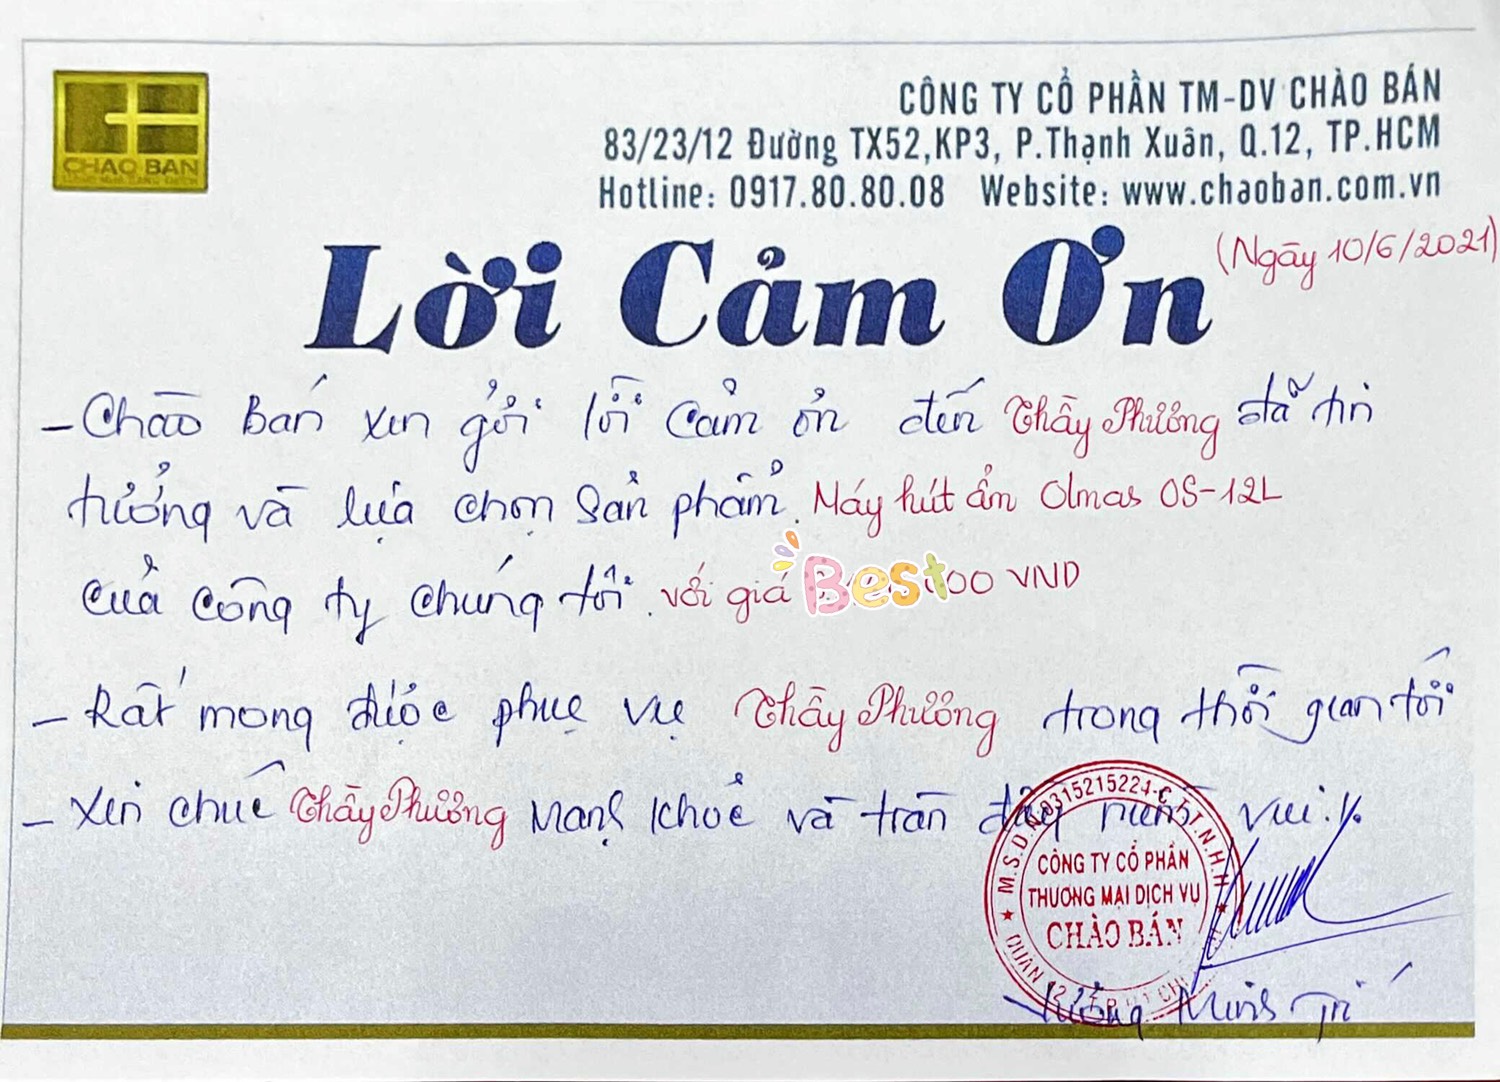 CHAO BAN
CÔNG TY CỔ PHẦN TM-DV CHÀO BÁN
83/23/12 Đường TX52,KP3, P.Thạnh Xuân, Q.12, TP.HCM
Hotline: 0917.80.80.08 Website: www.chaoban.com.vn
Lời Cảm Ơn
(Ngày 10/6/2021)
- Chào Bán xin gửi lời cảm ơn đến Thầy Phương đã tin
tưởng và lựa chọn sản phẩm. Máy hút ẩm Olmas OS-12L
của công ty chúng tôi. với giá Best 000 VND
- Rất mong được phục vụ Thầy Phương trong thời gian tới
- Xin chúc Thầy Phương mạnh khoẻ và tràn đầy niềm vui./.
M.S.D.N:0315215224-C.T.T.N.H.H
CÔNG TY CỔ PHẦN
THƯƠNG MẠI DỊCH VỤ
CHÀO BÁN
QUẬN 12
Minh Trí